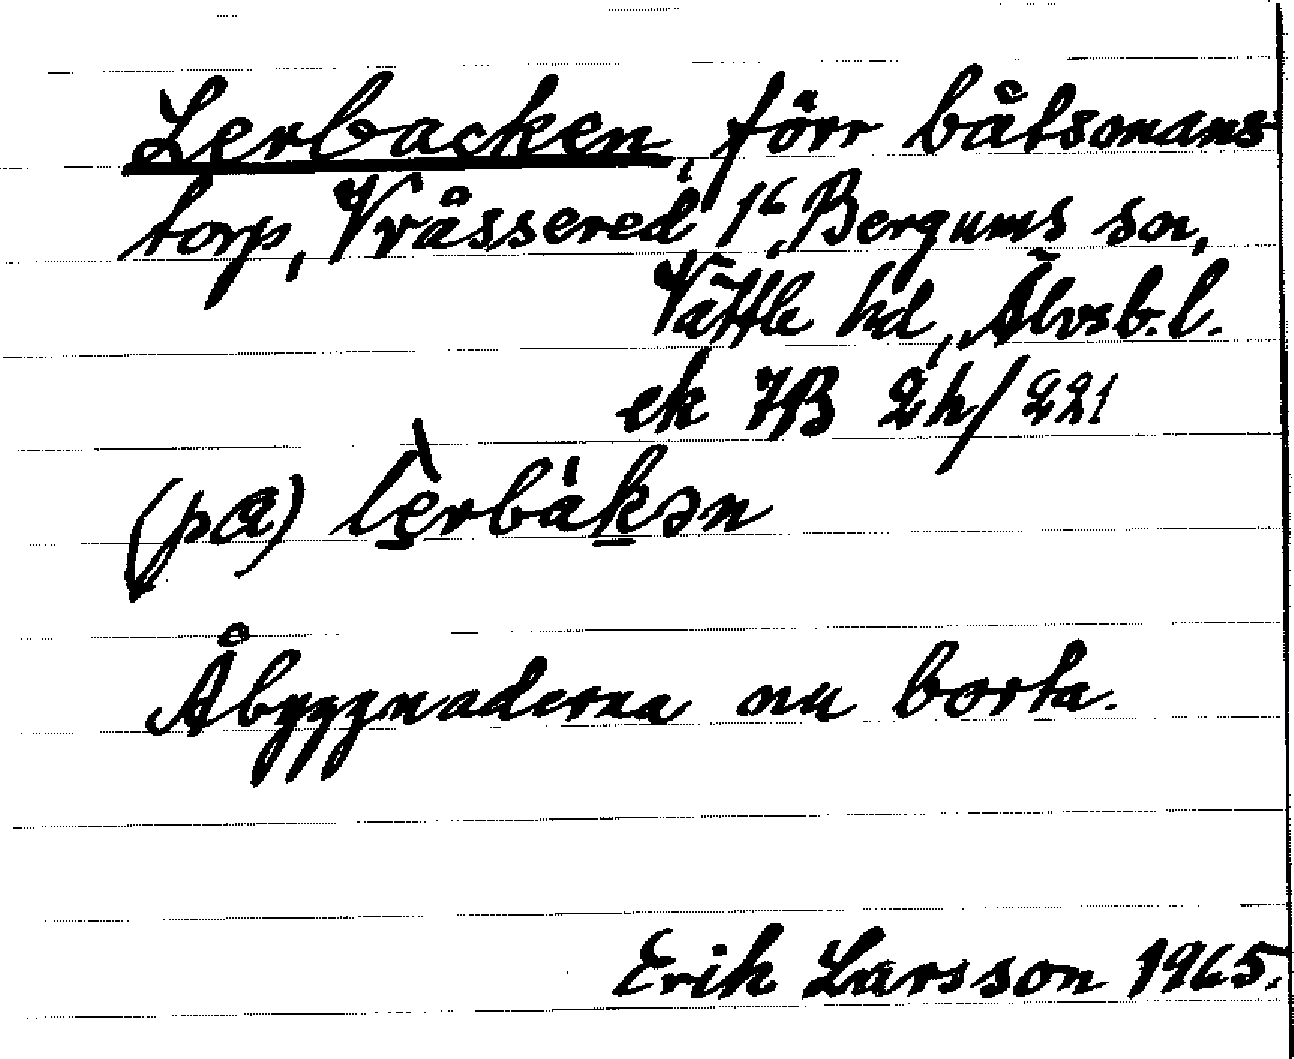 Lerbacken, förr båtsmans
torp, Vråssered 1⁶, Bergums sn,
Vättle hd, Älvsb. l.
ek 7B 2h/221
(pɑ) lèrbàkən
Åbyggnaderna nu borta.
Erik Larsson 1965.